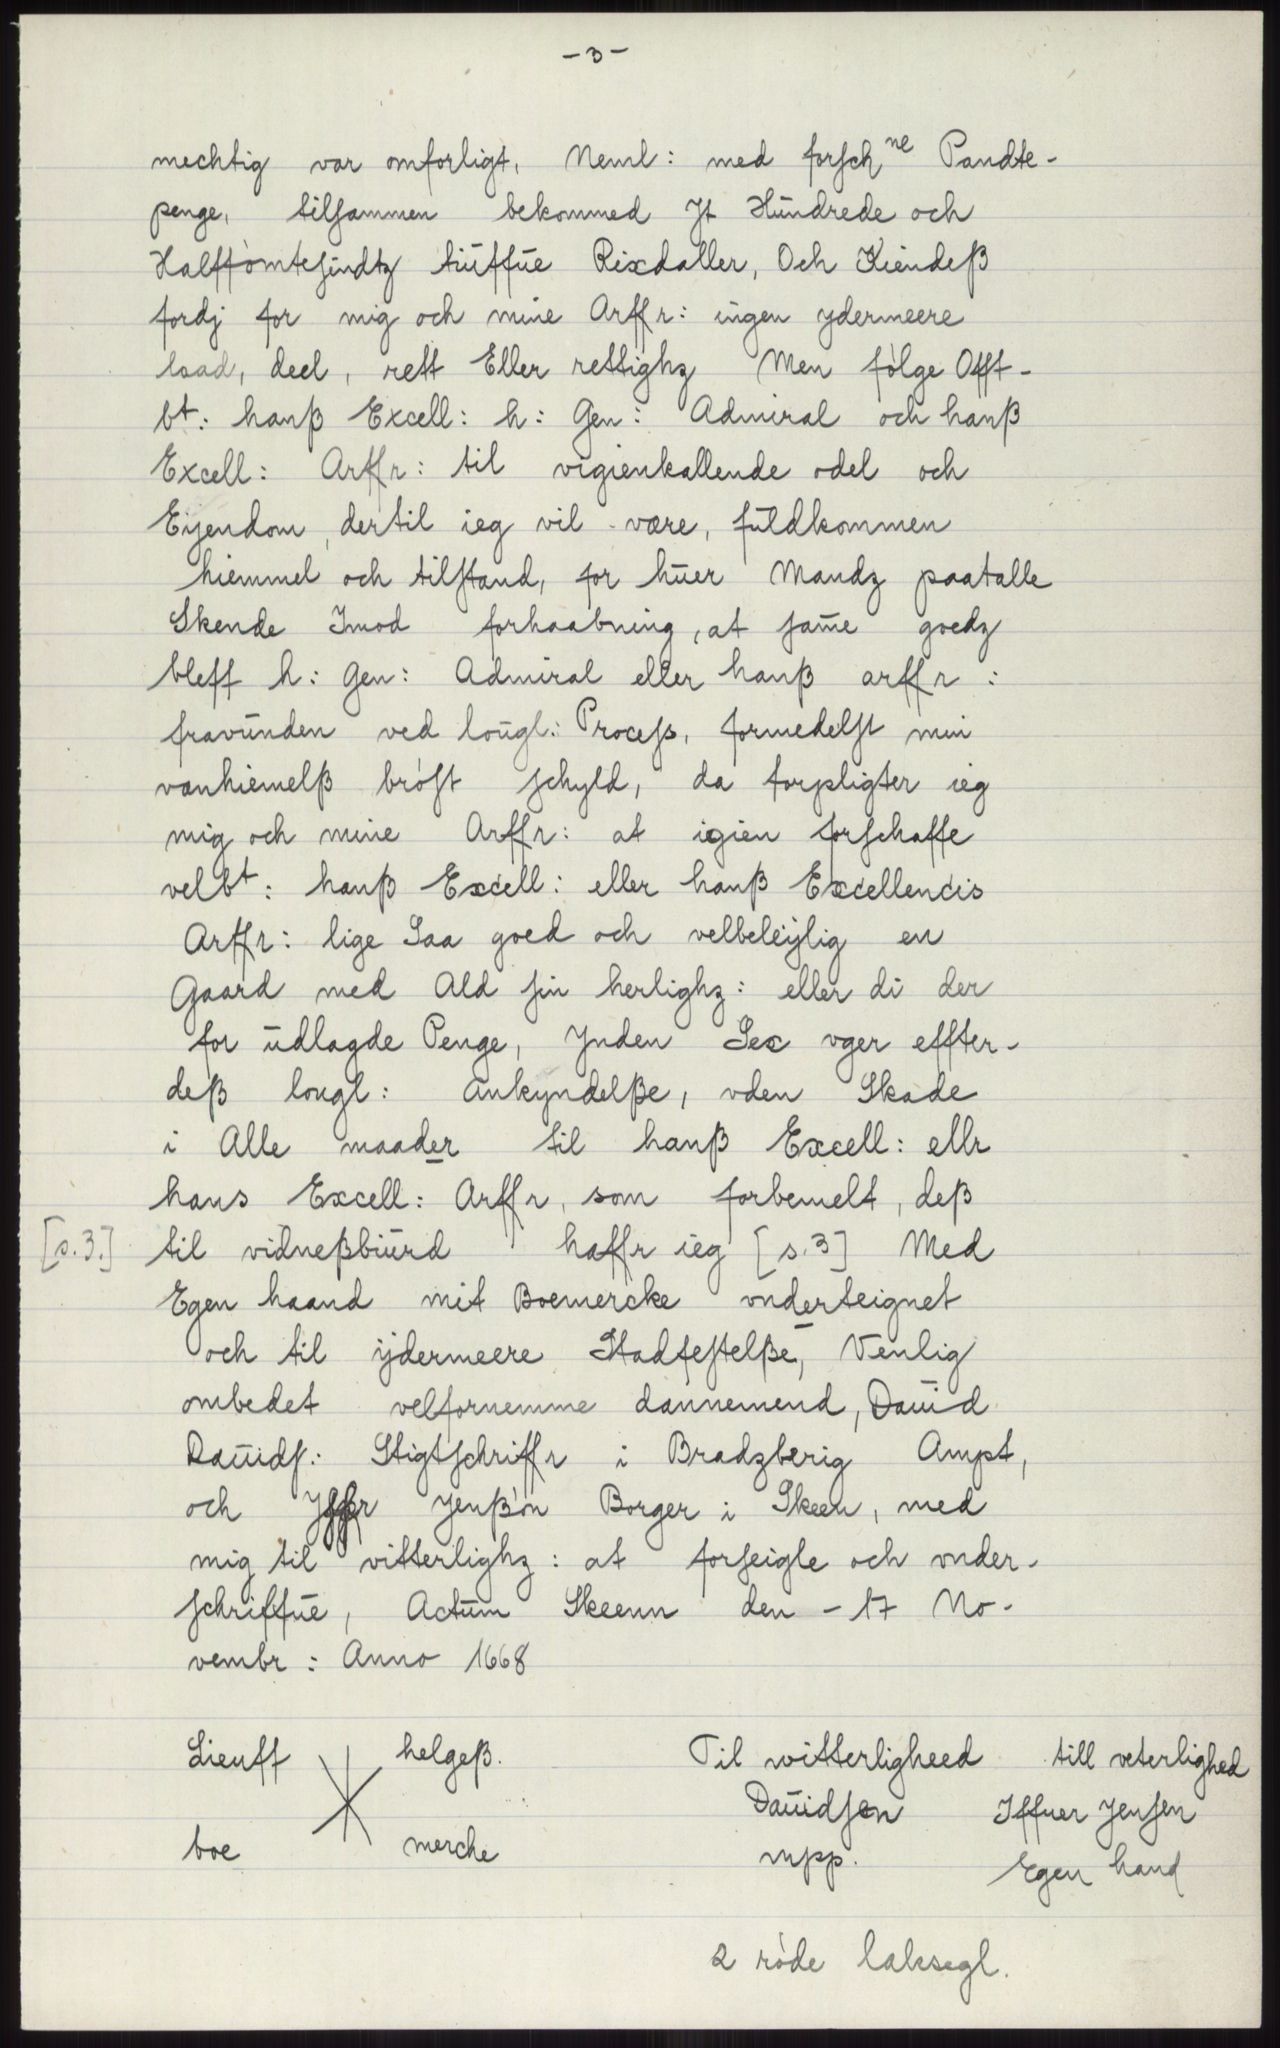 - 3 -
mechtig var omforligt, Neml: med forsch ne Pandte-
penge, tilsammen bekommed Jt Hundrede och
Halffömtesindtz tüffue Rixdaller, Och Kiendeß
fordj for mig och mine Arffr: ingen ydermeere
laad, deel, rett Eller rettighz Men følge Offt-
bt: hanß Excell: h: Gen: Admiral och hanß
Excell: Arffr: til vigienkallende odel och
Eyendom, dertil ieg vil være, füldkommen
hiemmel och tilstand, for hüer Mandz paatalle
Skende Imod forhaabning, at same goedz
bleff h: Gen: Admiral eller hanß arffr:
fravünden ved loügl: Process, formedelst min
vanhiemelß bröst schyld, da forpligter ieg
mig och mine Arffr: at igien forschaffe
velbt: hanß Excell: eller hanß Excellencis
Arffr: lige Saa goed och velbeleÿlig en
Gaard med Ald sin herlighz: eller di der
for üdlagde Penge, Jnden Sex vger effter-
deß lougl: ankyndelße, vden Skade
i Alle maader til hanß Excell: ellr
hans Excell: Arffr, som forbemelt, deß
[s.3.] til vidneßbiürd haffr ieg [s.3] Med
Egen haand mit Boemercke vnderteignet
och til ÿdermeere Stadfestelße, Venlig
ombedet velfornemme dannemend, Dauid
Dauids: Stigtschriffr i Bradzberig Ampt,
och Jffr Jenßön Borger i Skeen, med
mig til vitterlighz: at forseigle och vnder-
schriffue, Actüm Skeenn den - 17 No-
vembr: Anno 1668
Lieuff helgeß. Til witterligheed till veterlighed
Dauidsen Iffuer Jensen
boe merche mpp. Egen hand
2 røde laksegl.